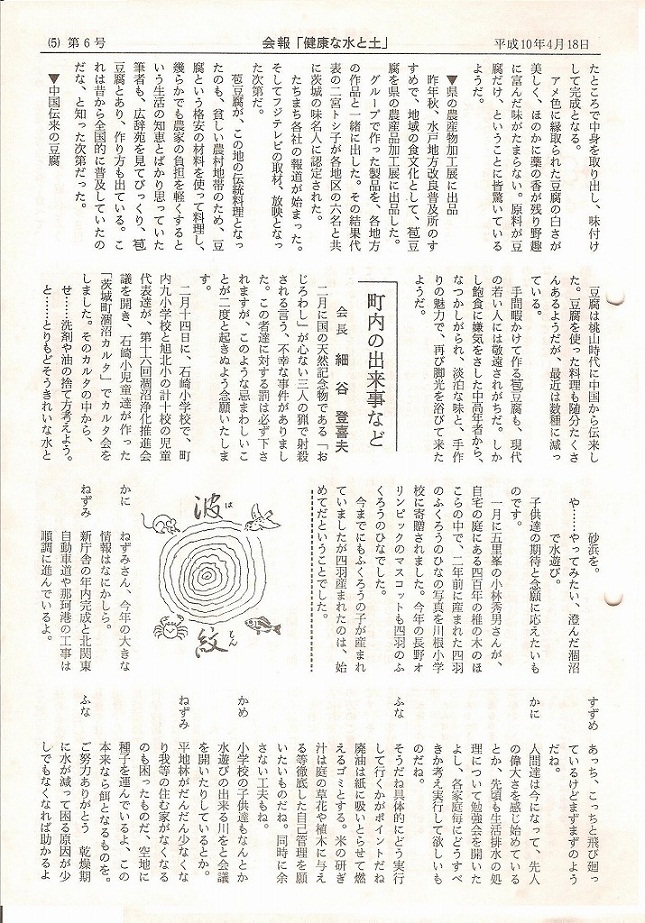 (5) 第6号
会報「健康な水と土」
平成10年4月18日
たところで中身を取り出し、味付け
して完成となる。
アメ色に縁取られた豆腐の白さが
美しく、ほのかに藁の香が残り野趣
に富んだ味がたまらない。原料が豆
腐だけ、ということに皆驚いている
ようだ。
▼県の農産物加工展に出品
昨年秋、水戸地方改良普及所のす
すめで、地域の食文化として、苞豆
腐を県の農産品加工展に出品した。
グループで作った製品を、各地方
の作品と一緒に出した。その結果代
表の二宮トシ子が各地区の六名と共
に茨城の味名人に認定された。
たちまち各社の報道が始まった。
そしてフジテレビの取材、放映となっ
た次第だ。
苞豆腐が、この地の伝統料理となっ
たのも、貧しい農村地帯のため、豆
腐という格安の材料を使って料理し、
幾らかでも農家の負担を軽くすると
いう生活の知恵とばかり思っていた
筆者も、広辞苑を見てびっくり、苞
豆腐とあり、作り方も出ている。こ
れは昔から全国的に普及していたの
だな、と知った次第だった。
▼中国伝来の豆腐
豆腐は桃山時代に中国から伝来し
た。豆腐を使った料理も随分たくさ
んあるようだが、最近は数種に減っ
ている。
手間暇かけて作る苞豆腐も、現代
の若い人には敬遠されがちだ。しか
し飽食に嫌気をさした中高年者から、
なつかしがられ、淡泊な味と、手作
りの魅力で、再び脚光を浴びて来た
ようだ。
町内の出来事など
会長 細谷登喜夫
二月に国の天然記念物である「お
じろわし」が心ない三人の猟で射殺
される言う、不幸な事件がありまし
た。この者達に対する罰は必ず下さ
れますが、このような忌まわしいこ
とが二度と起きぬよう念願いたしま
す。
二月十四日に、石崎小学校で、町
内九小学校と旭北小の計十校の児童
代表達が、第十六回涸沼浄化推進会
議を開き、石崎小児童達が作った
「茨城町涸沼カルタ」でカルタ会を
しました。そのカルタの中から、
せ……洗剤や油の捨て方考えよう。
と……とりもどそうきれいな水と
砂浜を。
や……やってみたい、澄んだ涸沼
で水遊び。
子供達の期待と念願に応えたいも
のです。
一月に五里峯の小林秀男さんが、
自宅の庭にある四百年の椎の木のほ
こらの中で、二年前に産まれた四羽
のふくろうのひなの写真を川根小学
校に寄贈されました。今年の長野オ
リンピックのマスコットも四羽のふ
くろうのひなでした。
今までにもふくろうの子が産まれ
ていましたが四羽産まれたのは、始
めてだということでした。
波は
紋もん
かに ねずみさん、今年の大きな
情報はなにかしら。
ねずみ 新庁舎の年内完成と北関東
自動車道や那珂港の工事は
順調に進んでいるよ。
すずめ あっち、こっちと飛び廻っ
ているけどまずまずのよう
だね。
かに 人間達は今になって、先人
の偉大さを感じ始めている
とか、先頃も生活排水の処
理について勉強会を開いた
よし、各家庭毎にどうすべ
きか考え実行して欲しいも
のだね。
ふな そうだね具体的にどう実行
して行くかがポイントだね
廃油は紙に吸いとらせて燃
えるゴミとする。米の研ぎ
汁は庭の草花や植木に与え
る等徹底した自己管理を願
いたいものだね。同時に余
さない工夫もね。
かめ 小学校の子供達もなんとか
水遊びの出来る川をと会議
を開いたりしているとか。
ねずみ 平地林がだんだん少なくな
り我等の住む家がなくなる
のも困ったものだ、空地に
種子を運んでいるよ、この
本来なら餌となるものを。
ふな ご努力ありがとう 乾燥期
に水が減って困る原因が少
しでもなくなれば助かるよ